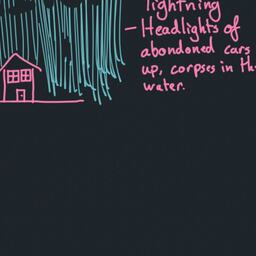 lightning
- Headlights of
abondoned cars
up, corpses in the
water.